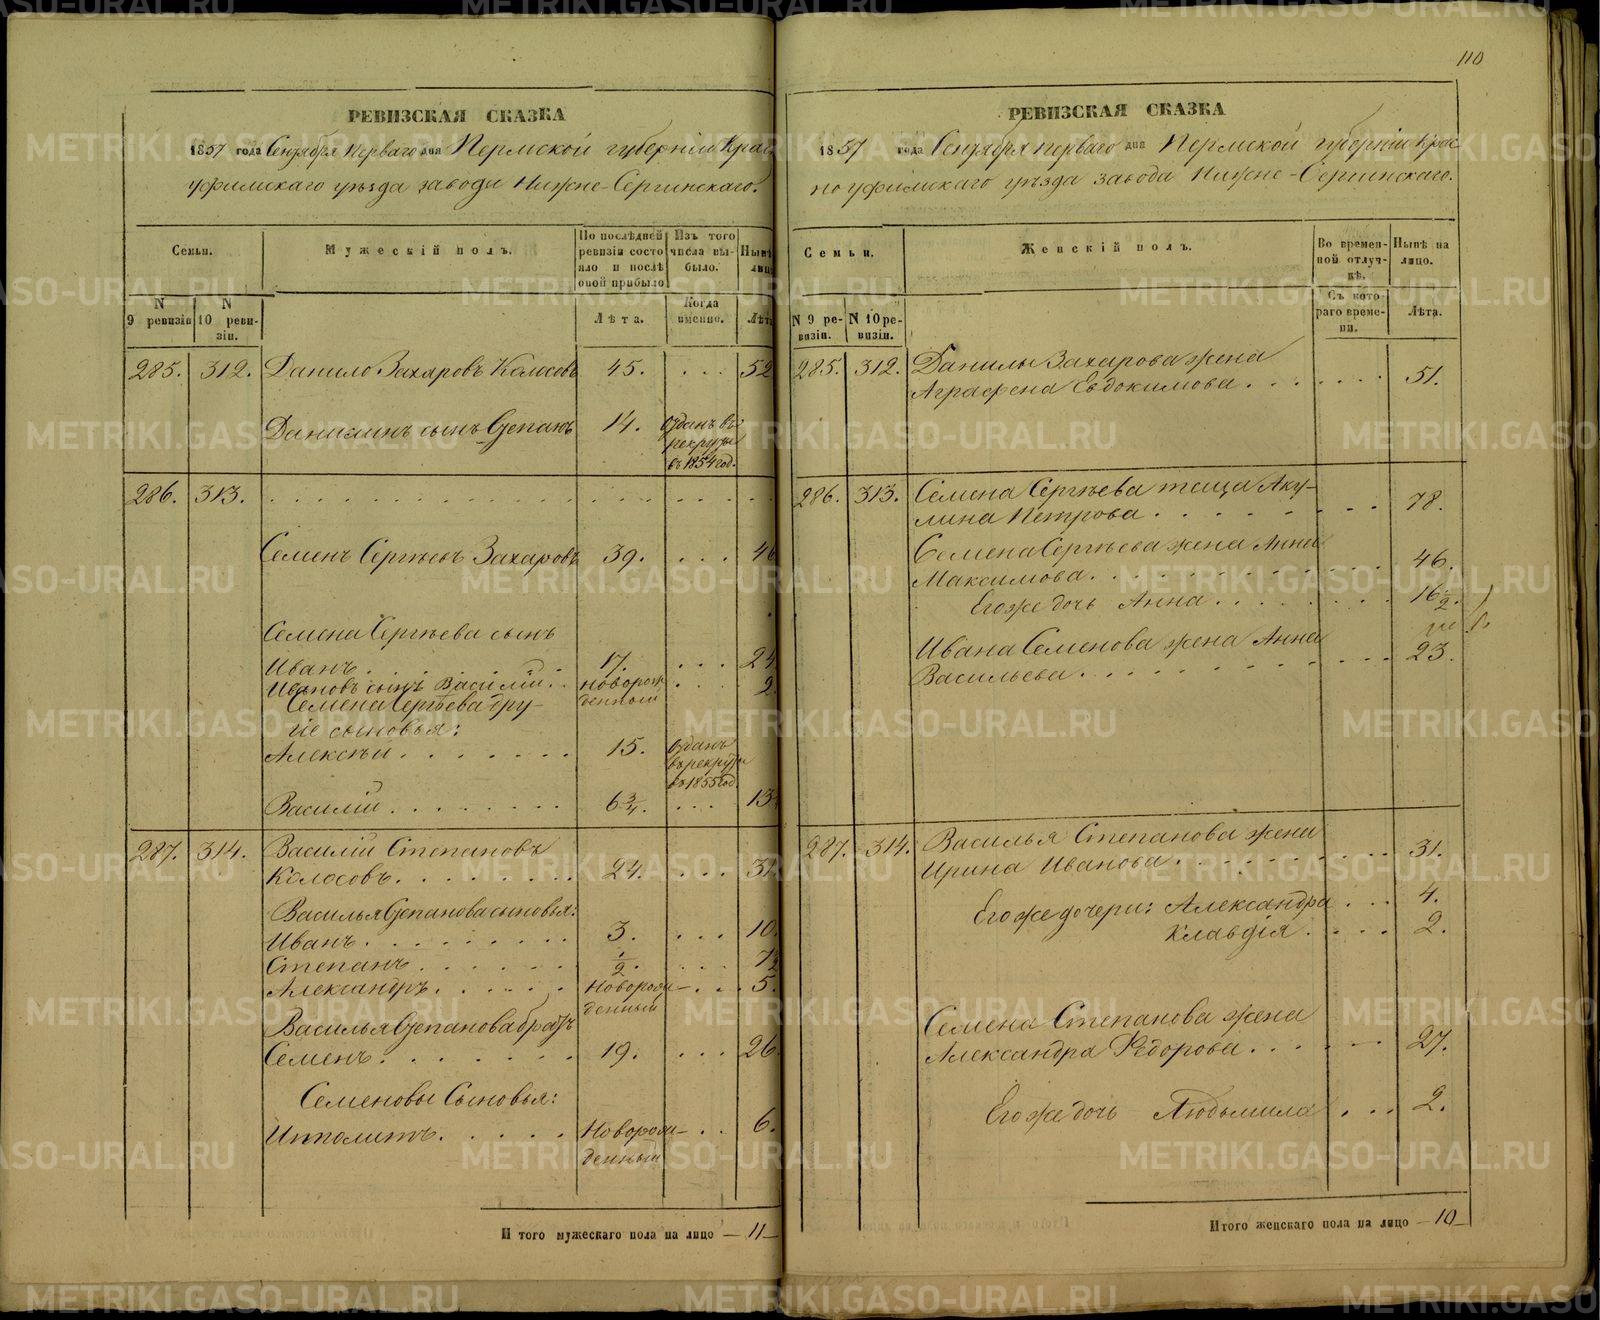 РЕВИЗСКАЯ СКАЗКА
1857 года Сентября перваго дня Пермской губернiи Крас
уфимскаго уѣзда завода Нижне-Сергинскаго.
Семьи.
Мужескiй полъ.
По послѣдней ревизiи состояло и послѣ оной прибыло
Изъ того числа выбыло.
Нынѣ на лицо
N 9 ревизiи
N 10 ревизiи.
Лѣта.
Когда именно.
Лѣта
285. 312. Данило Захаровъ Колосовъ 45. . . . 52
Данилинъ сынъ Степанъ 14. Отданъ въ
рекруты
въ 1854 год.
286. 313.
Семенъ Сергѣевъ Захаровъ 39. . . . 46
Семена Сергѣева сынъ
Иванъ . . . 17. . . . 24
Ивановъ сынъ Василiй . . новорож . . . 2.
денный
Семена Сергѣева дру-
гiе сыновья:
Алексѣй . . . 15. Отданъ
въ рекруты
въ 1855 год.
Василiй . . . 6 3/4. . . . 13
287. 314. Василiй Степановъ
Колосовъ . . . 24. . . . 31
Василья Степанова сыновья:
Иванъ . . . 3. . . . 10.
Степанъ . . . 1/2. . . . 7 1/2
Александръ . . . Новорож- . . . 5.
денный
Василья Степанова братъ
Семенъ . . . 19. . . . 26
Семеновы Сыновья:
Ипполитъ . . . Новорож- . . 6.
денный
Итого мужескаго пола на лицо — 11 —
110
РЕВИЗСКАЯ СКАЗКА
1857 года Сентября перваго дня Пермской губернiи Крас
ноуфимскаго уѣзда завода Нижне-Сергинскаго.
Семьи.
Женскiй полъ.
Во временной отлучкѣ.
Нынѣ на лицо.
N 9 ревизiи.
N 10 ревизiи.
Съ котораго времени.
Лѣта.
285. 312. Данилы Захарова жена
Аграфена Евдокимова . . . 51.
286. 313. Семена Сергѣева теща Аку-
лина Петрова . . . 78.
Семена Сергѣева жена Анна
Максимова . . . 46.
Его же дочь Анна . . . 16 1/2.
Ивана Семенова жена Анна
Васильева . . . 23.
287. 314. Василья Степанова жена
Ирина Иванова . . . 31.
Его же дочери: Александра . . . 4.
Клавдiя . . . 2.
Семена Степанова жена
Александра Федорова . . . 27.
Его же дочь Людьмила . . . 2.
Итого женскаго пола на лицо — 10 —
METRIKI.GASO-URAL.RU